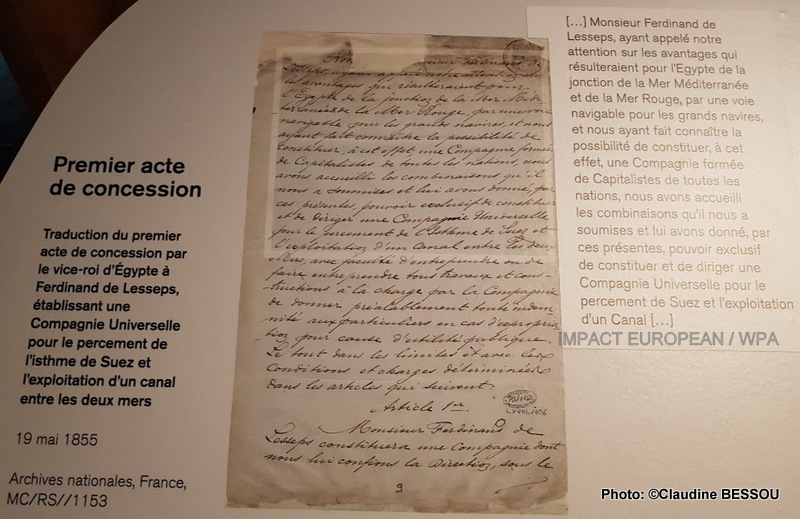 Premier acte
de concession
Traduction du premier
acte de concession par
le vice-roi d'Égypte à
Ferdinand de Lesseps,
établissant une
Compagnie Universelle
pour le percement de
l'isthme de Suez et
l'exploitation d'un canal
entre les deux mers
19 mai 1855
Archives nationales, France,
MC/RS//1153
Lesseps, ayant appelé notre attention sur
les avantages qui résulteraient pour
l'Egypte de la jonction de la Mer Médi-
terranée et de la Mer Rouge, par une voie
navigable pour les grands navires, et nous
ayant fait connaître la possibilité de
constituer, à cet effet une Compagnie formée
de Capitalistes de toutes les nations, nous
avons accueilli les combinaisons qu'il
nous a soumises et lui avons donné, par
ces présentes, pouvoir exclusif de constituer
et de diriger une Compagnie Universelle
pour le percement de l'Isthme de Suez et
l'exploitation d'un Canal entre les deux
Mers, avec faculté d'entreprendre ou de
faire entreprendre tous travaux et cons-
tructions à la charge par la Compagnie
de donner préalablement toute indem
nité aux particuliers en cas d'expropria
tion pour cause d'utilité publique
Le tout dans les limites et avec les
conditions et charges déterminées
dans les articles qui suivent.
Article 1er.
Monsieur Ferdinand de
Lesseps constituera une Compagnie dont
nous lui confions la Direction, sous le
[...] Monsieur Ferdinand de
Lesseps, ayant appelé notre
attention sur les avantages qui
résulteraient pour l'Egypte de la
jonction de la Mer Méditerranée
et de la Mer Rouge, par une voie
navigable pour les grands navires,
et nous ayant fait connaître la
possibilité de constituer, à cet
effet, une Compagnie formée
de Capitalistes de toutes les
nations, nous avons accueilli
les combinaisons qu'il nous a
soumises et lui avons donné, par
ces présentes, pouvoir exclusif
de constituer et de diriger une
Compagnie Universelle pour le
percement de Suez et l'exploitation
d'un Canal [...]
IMPACT EUROPEAN / WPA
Photo: ©Claudine BESSOU